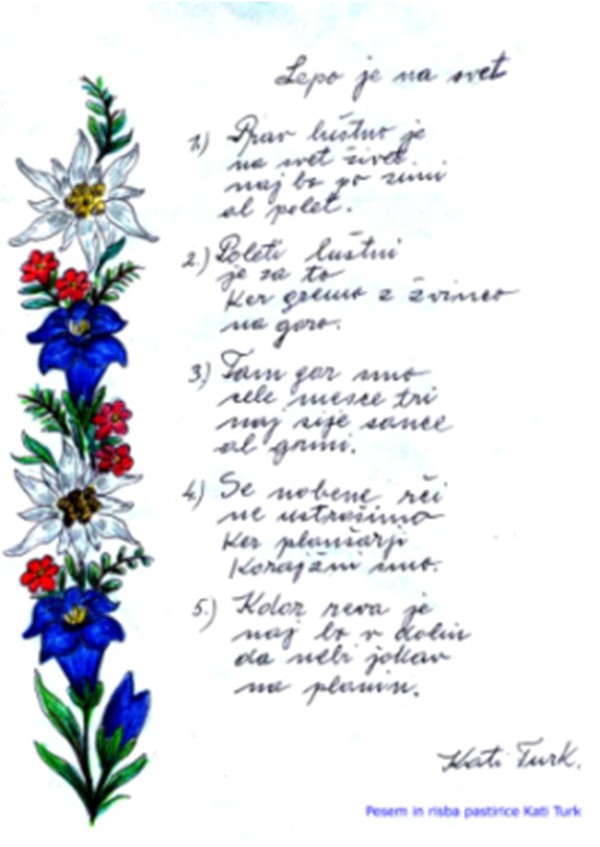 Lepo je na svet
1.) Prav luštno je
na svet živet.
naj bo po zimi
al polet.
2.) Poleti luštni
je za to
Ker gremo z žvinco
na goro.
3.) Tam gor smo
cele mesce tri
naj sije sonce
al grmi.
4.) Se nobene rči
ne ustrašimo
Ker planšarji
Korajžni smo.
5.) Kdor reva je
naj bo v dolin
da nebi jokav
na planin.
Kati Turk.
Pesem in risba pastirice Kati Turk